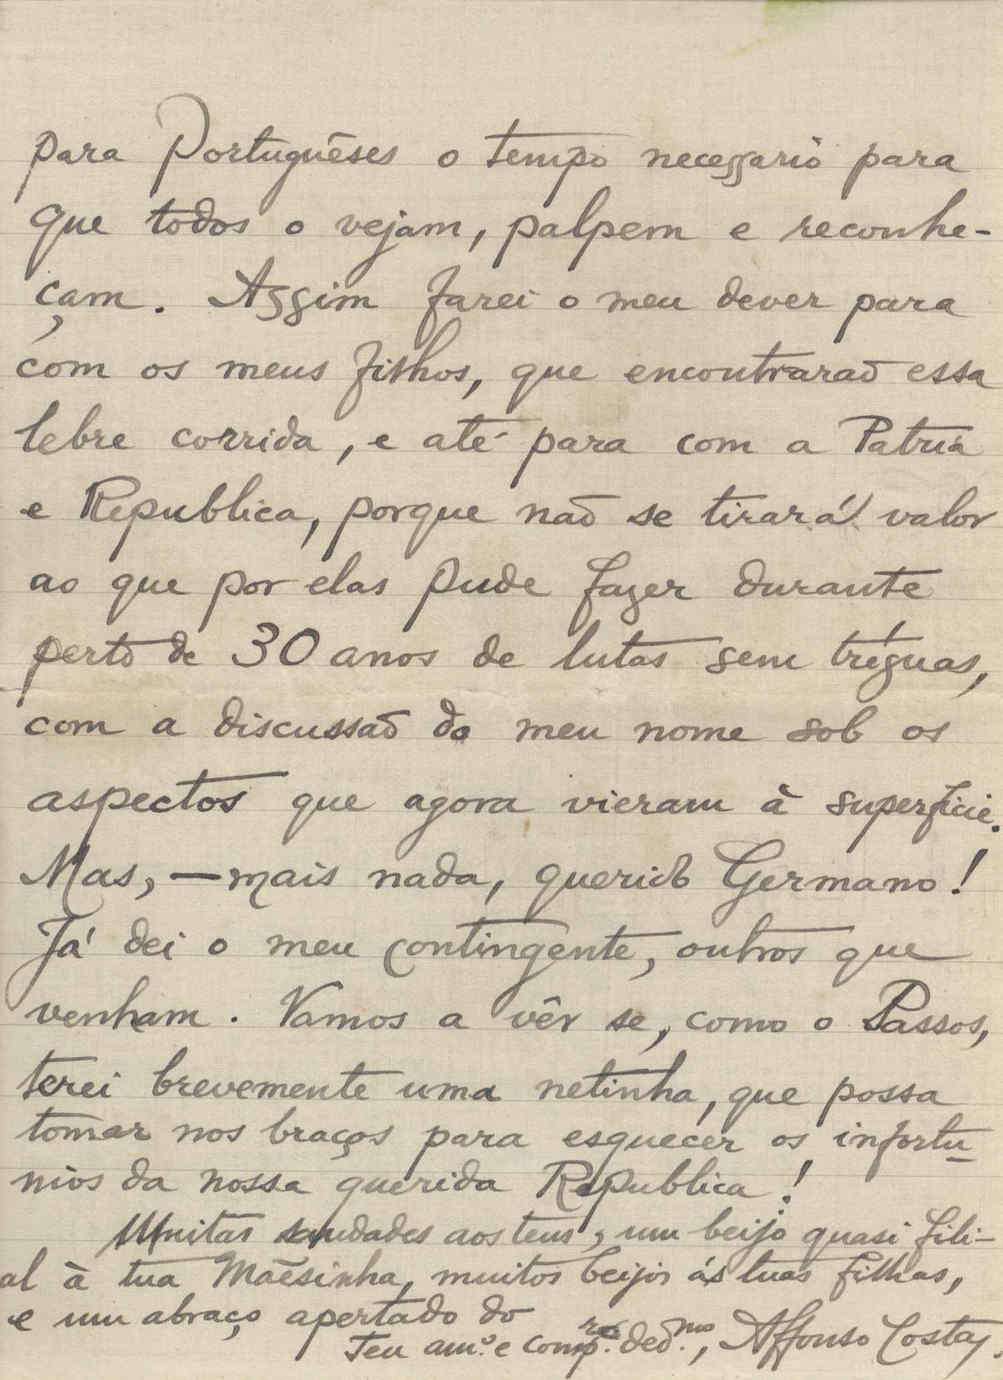 para Portuguêses o tempo necessario para
que todos o vejam, palpem e reconhe-
çam. Assim farei o meu dever para
com os meus filhos, que encontrarão essa
lebre corrida, e até para com a Patria
e Republica, porque não se tirará valor
ao que por elas pude fazer durante
perto de 30 anos de lutas sem tréguas,
com a discussão do meu nome sob os
aspectos que agora vieram à superficie.
Mas, — mais nada, querido Germano!
Já dei o meu contingente, outros que
venham. Vamos a vêr se, como o Passos,
terei brevemente uma netinha, que possa
tomar nos braços para esquecer os infortu-
nios da nossa querida Republica!
Muitas saudades aos teus, um beijo quasi fili-
al à tua Mãesinha, muitos beijos ás tuas filhas,
e um abraço apertado do
Teu am.º e comp.ro ded.mo, Affonso Costa.